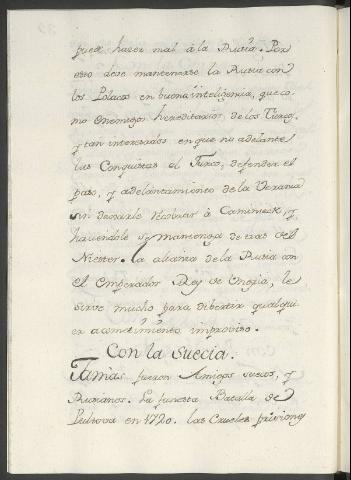 puede haser mal á la Rusia. Por
esto deve mantenerse la Rusia con
los Polacos en buena inteligencia, que co-
mo enemigos hereditarios de los Turcos,
y tan interesados en que no adelante
las Conquistas el Turco, defender el
paso, y adelantamiento de la Ucrania
sin dexarle recobrar á Caminieck, y
haciendole se mantenga detras del
Niester. La alianza de la Rusia con
el Emperador Rey de Ungria, le
sirve mucho para divertir qualqui-
er acometimiento improviso.
Con la Suecia.
Jamàs fueron Amigos suecos, y
Rusianos. La funesta Batalla de
Pultova en 1720. las Crueles prisiones